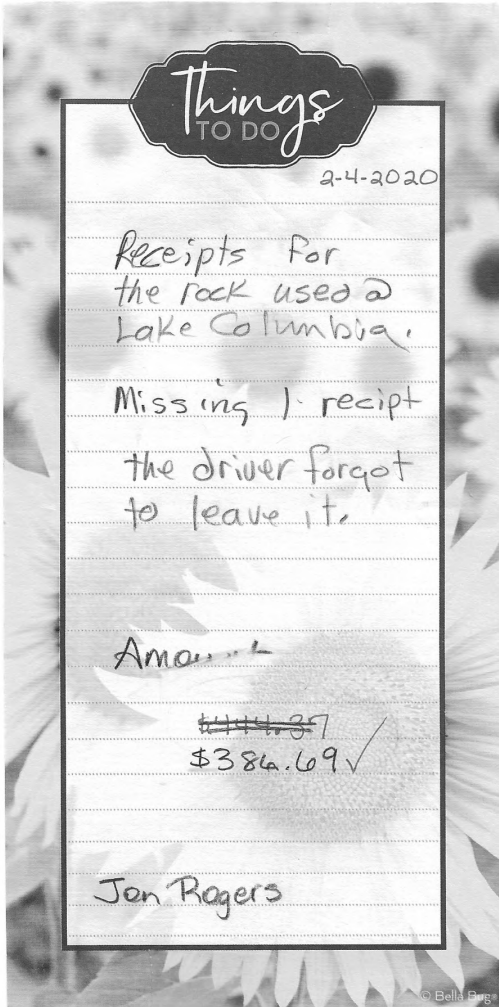 Things
TO DO
2-4-2020
Receipts for
the rock used @
Lake Columbia.
Missing 1 recipt
the driver forgot
to leave it.
$444.37
$386.69 ✓
Jon Rogers
© Bella Bug